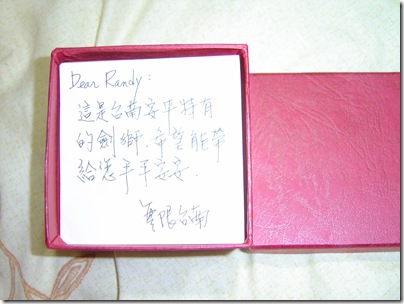 Dear Randy:
這是台南安平特有
的劍獅.希望能帶
給您平平安安.
無限台南